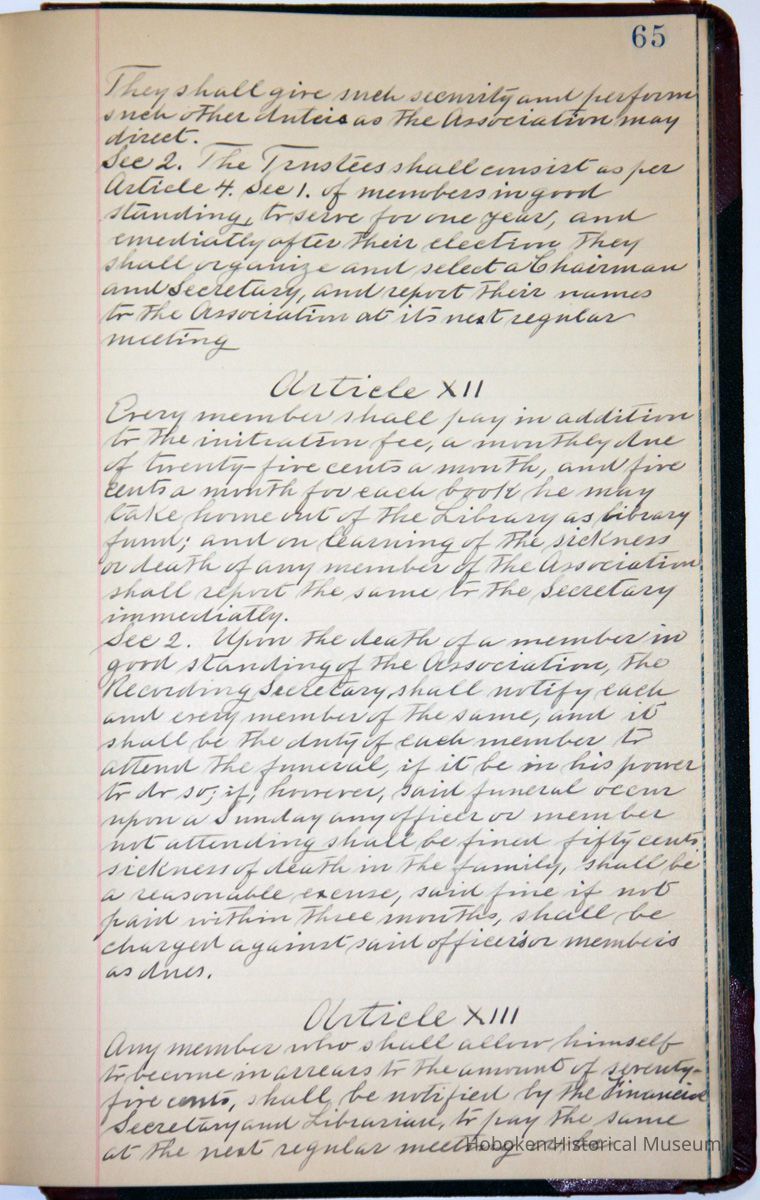 65
They shall give such security and perform
such other duties as the Association may
direct.
Sec 2. The Trustees shall consist as per
Article 4. Sec 1. of members in good
standing, to serve for one year, and
emediatly after their election they
shall organize and select a Chairman
and Secretary, and report their names
to the Association at its next regular
meeting
Article XII
Every member shall pay in addition
to the initiation fee, a monthly due
of twenty-five cents a month, and five
cents a month for each book he may
take home out of the Library as library
fund; and on learning of the sickness
or death of any member of the Association
shall report the same to the Secretary
immediatly.
Sec 2. Upon the death of a member in
good standing of the Association, the
Recording Secretary, shall notify each
and every member of the same, and it
shall be the duty of each member to
attend the funeral, if it be in his power
to do so; if, however, said funeral occur
upon a Sunday any officer or member
not attending shall be fined fifty cents
sickness of death in the family, shall be
a reasonable excuse, said fine if not
paid within three months, shall be
charged against said officers or members
as dues.
Article XIII
Any member who shall allow himself
to become in arrears to the amount of seventy-
five cents, shall be notified by the Financial
Secretary and Librarian, to pay the same
at the next regular meeting
Hoboken Historical Museum